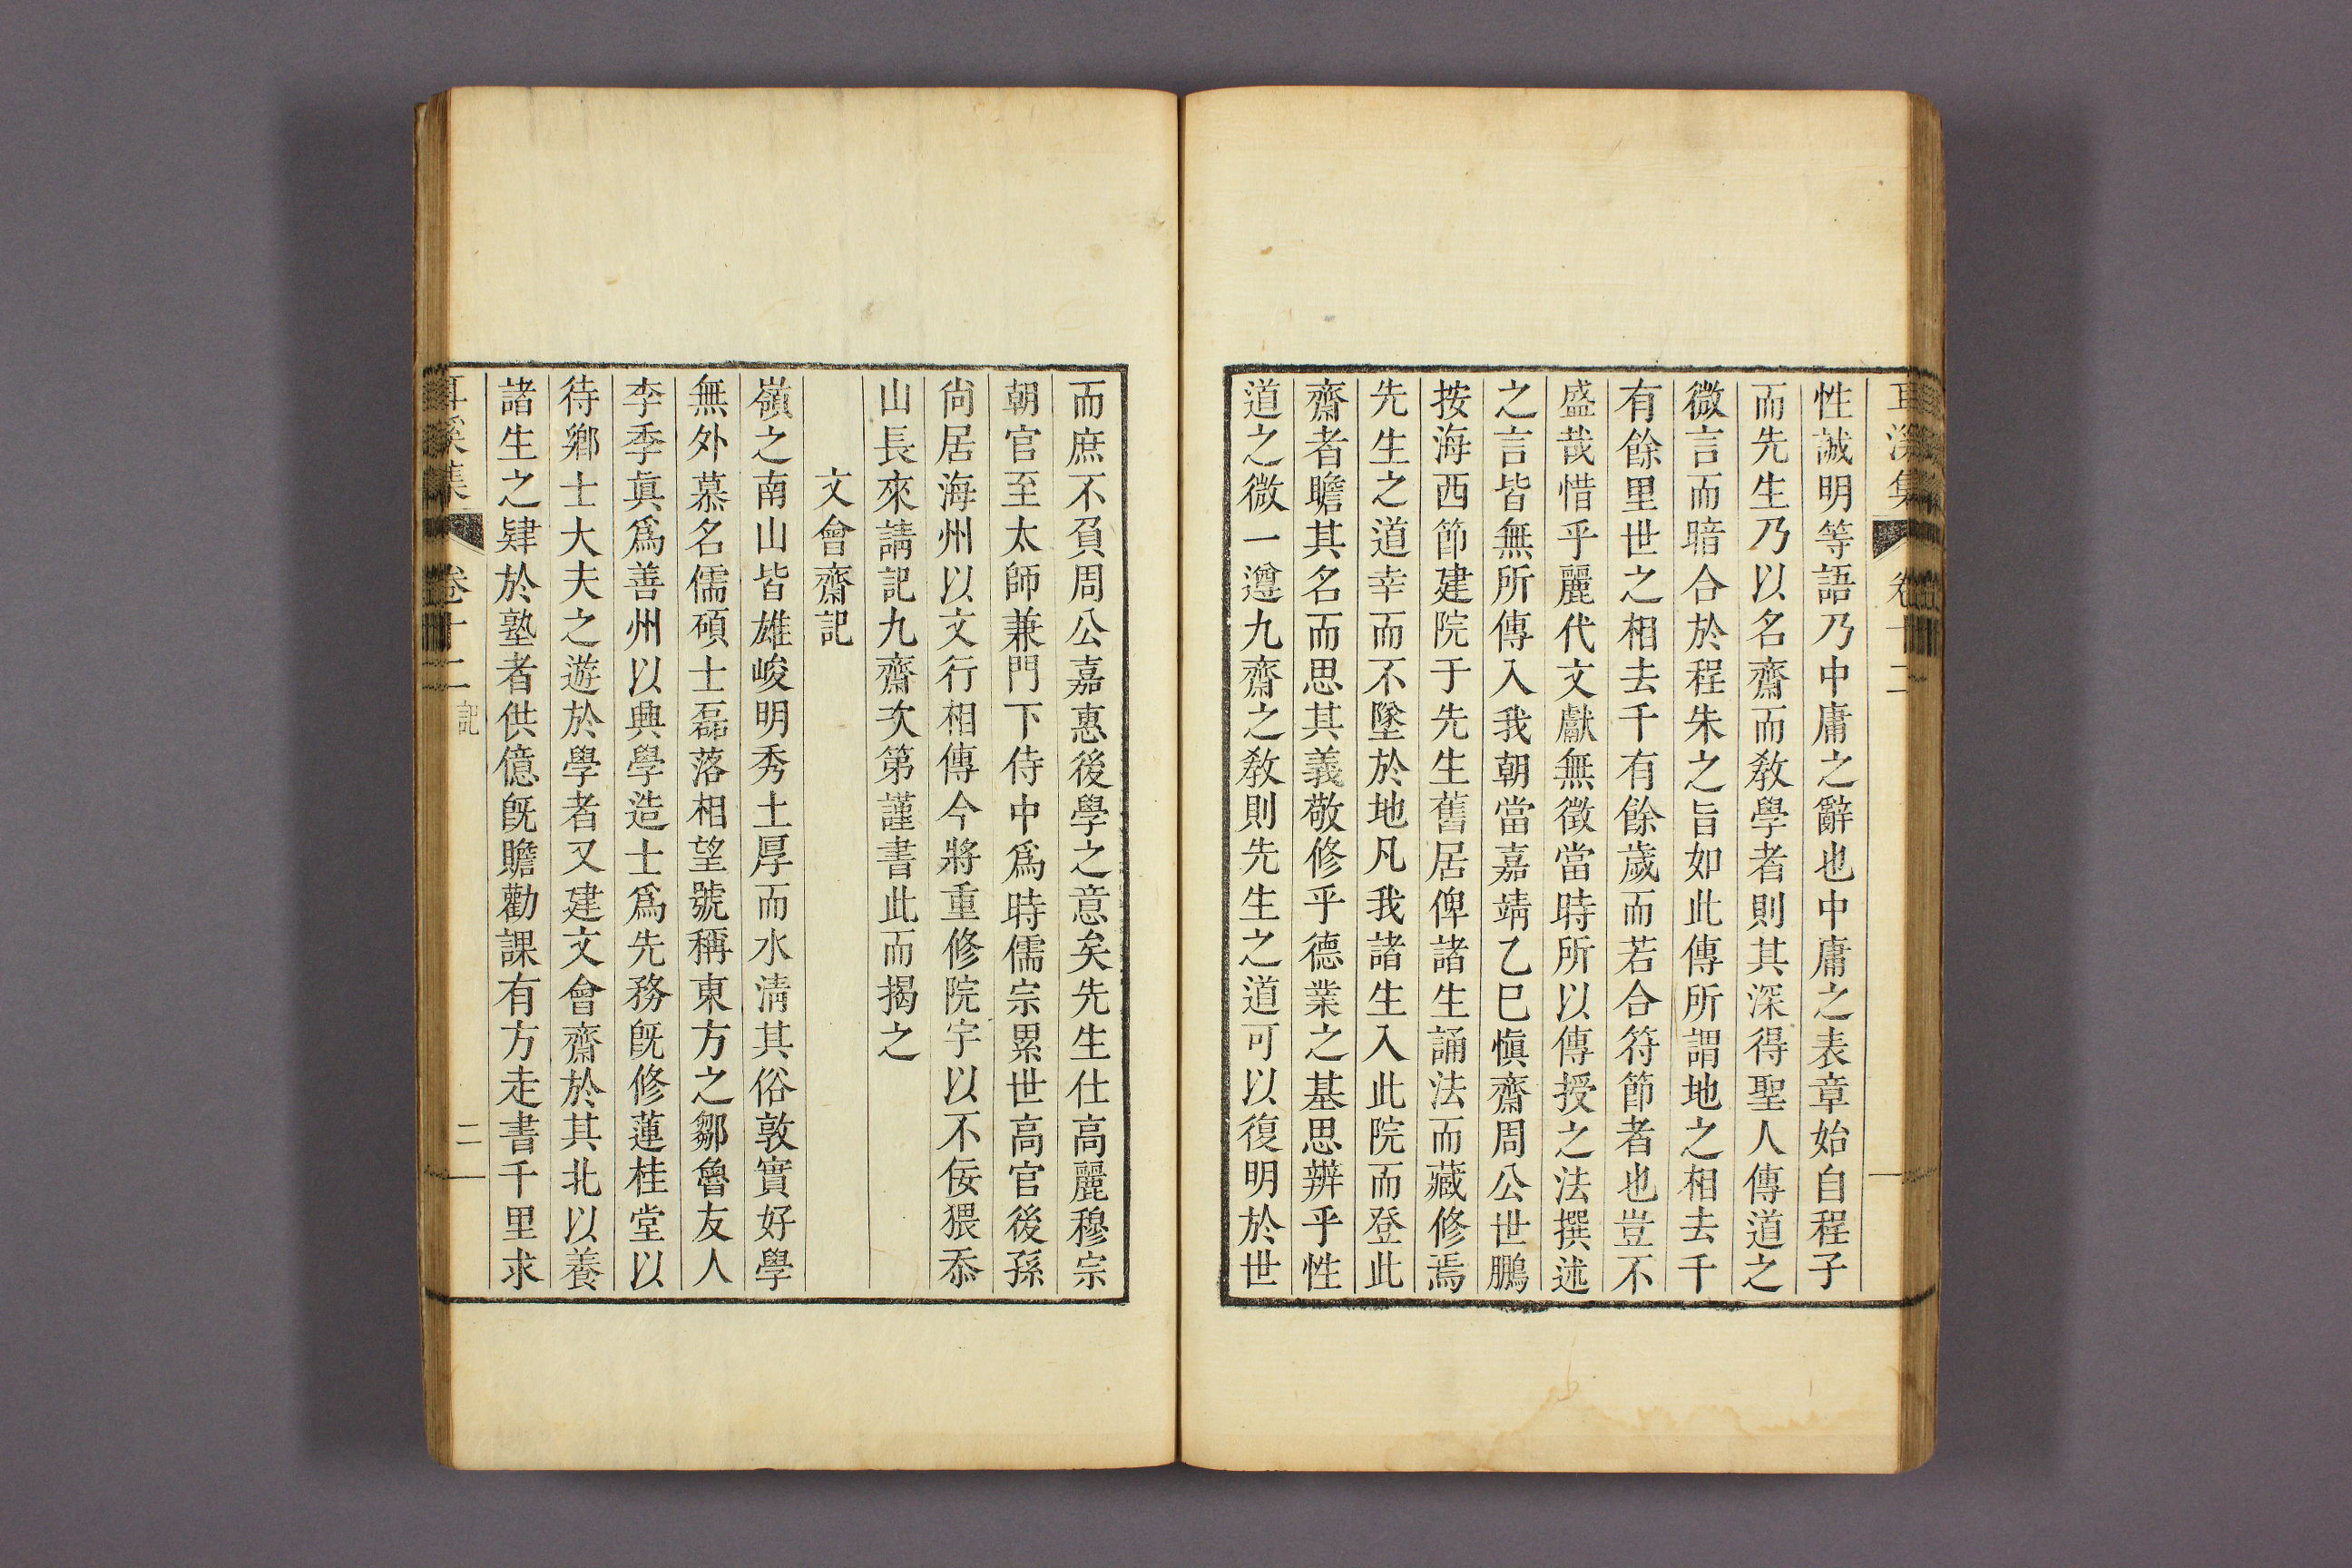 耳溪集 卷十二
性誠明等語乃中庸之辭也中庸之表章始自程子
而先生乃以名齋而敎學者則其深得聖人傳道之
微言而暗合於程朱之旨如此傳所謂地之相去千
有餘里世之相去千有餘歲而若合符節者也豈不
盛哉惜乎麗代文獻無徵當時所以傳授之法撰述
之言皆無所傳入我朝當嘉靖乙巳愼齋周公世鵬
按海西節建院于先生舊居俾諸生誦法而藏修焉
先生之道幸而不墜於地凡我諸生入此院而登此
齋者瞻其名而思其義敬修乎德業之基思辨乎性
道之微一遵九齋之敎則先生之道可以復明於世
而庶不負周公嘉惠後學之意矣先生仕高麗穆宗
朝官至太師兼門下侍中爲時儒宗累世高官後孫
尙居海州以文行相傳今將重修院宇以不佞猥忝
山長來請記九齋次第謹書此而揭之
文會齋記
嶺之南山皆雄峻明秀土厚而水淸其俗敦實好學
無外慕名儒碩士磊落相望號稱東方之鄒魯友人
李季眞爲善州以典學造士爲先務旣修蓮桂堂以
待鄕士大夫之遊於學者又建文會齋於其北以養
諸生之肄於塾者供億旣贍勸課有方走書千里求
耳溪集 卷十二 記 二